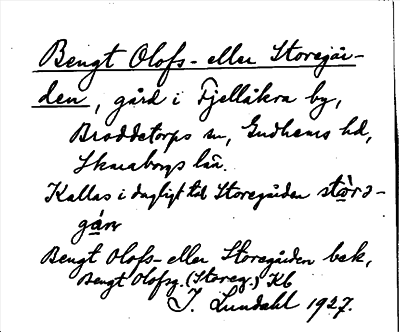 Bengt Olofs- eller Storegår-
den, gård i Fjellåkra by,
Broddetorps sn, Gudhems hd,
Skaraborgs län.
Kallas i dagligt tal Storegården störə-
gárn
Bengt Olofs- eller Storegården bek,
Bengt Olofsg. (Storeg.) Kb
J. Lundahl 1927.